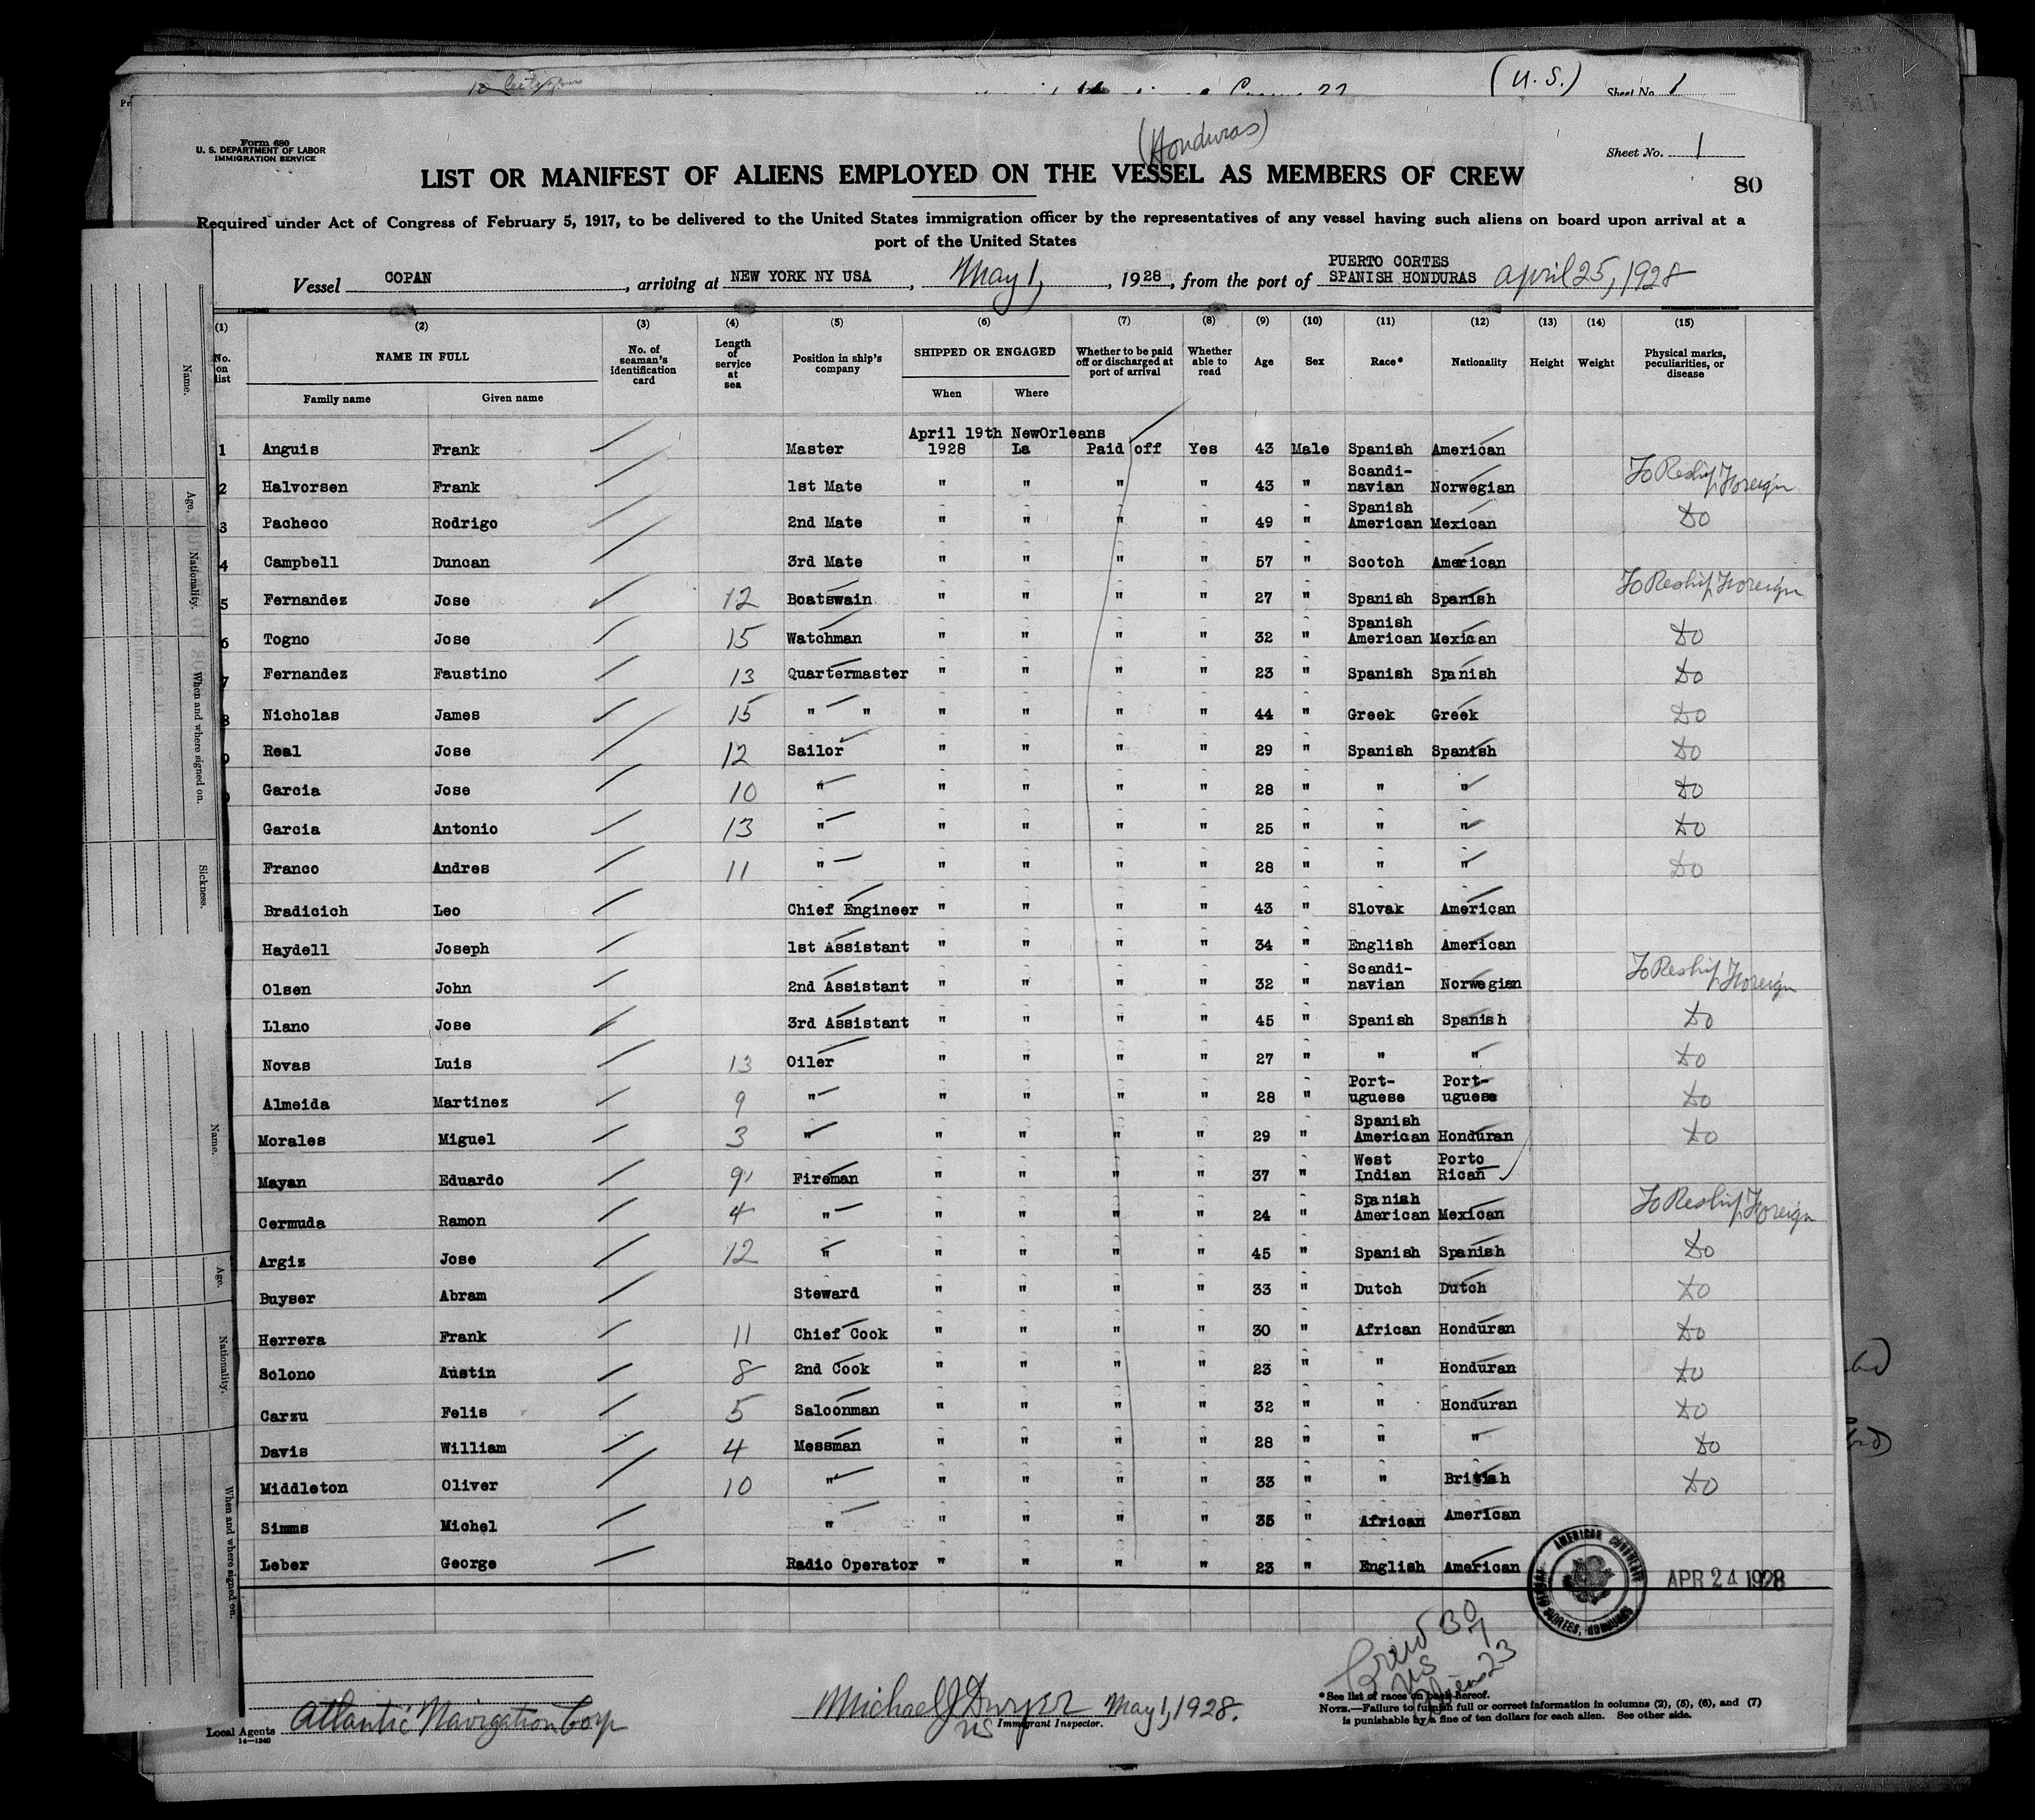 (U. S.) Sheet No. 1
(Honduras)
Form 680
U. S. DEPARTMENT OF LABOR
IMMIGRATION SERVICE
Sheet No. 1
LIST OR MANIFEST OF ALIENS EMPLOYED ON THE VESSEL AS MEMBERS OF CREW
80
Required under Act of Congress of February 5, 1917, to be delivered to the United States immigration officer by the representatives of any vessel having such aliens on board upon arrival at a
port of the United States
Vessel COPAN, arriving at NEW YORK NY USA, May 1, 1928, from the port of PUERTO CORTES SPANISH HONDURAS april 25, 1928
(1) (2) (3) (4) (5) (6) (7) (8) (9) (10) (11) (12) (13) (14) (15)
No. on list NAME IN FULL Family name Given name No. of seaman's identification card Length of service at sea Position in ship's company SHIPPED OR ENGAGED When Where Whether to be paid off or discharged at port of arrival Whether able to read Age Sex Race* Nationality Height Weight Physical marks, peculiarities, or disease
1 Anguis Frank Master April 19th 1928 NewOrleans La Paid off Yes 43 Male Spanish American
2 Halvorsen Frank 1st Mate " " " " 43 " Scandi-navian Norwegian To Reship Foreign
3 Pacheco Rodrigo 2nd Mate " " " " 49 " Spanish American Mexican Do
4 Campbell Duncan 3rd Mate " " " " 57 " Scotch American
5 Fernandez Jose 12 Boatswain " " " " 27 " Spanish Spanish To Reship Foreign
6 Togno Jose 15 Watchman " " " " 32 " Spanish American Mexican Do
7 Fernandez Faustino 13 Quartermaster " " " " 23 " Spanish Spanish Do
8 Nicholas James 15 " " " " " " 44 " Greek Greek Do
Real Jose 12 Sailor " " " " 29 " Spanish Spanish Do
Garcia Jose 10 " " " " " 28 " " " Do
Garcia Antonio 13 " " " " " 25 " " " Do
Franco Andres 11 " " " " " 28 " " " Do
Bradicich Leo Chief Engineer " " " " 43 " Slovak American
Haydell Joseph 1st Assistant " " " " 34 " English American
Olsen John 2nd Assistant " " " " 32 " Scandi-navian Norwegian To Reship Foreign
Llano Jose 3rd Assistant " " " " 45 " Spanish Spanish Do
Novas Luis 13 Oiler " " " " 27 " " " Do
Almeida Martinez 9 " " " " " 28 " Port-uguese Port-uguese Do
Morales Miguel 3 " " " " " 29 " Spanish American Honduran Do
Mayan Eduardo 9 Fireman " " " " 37 " West Indian Porto Rican
Cermuda Ramon 4 " " " " " 24 " Spanish American Mexican To Reship Foreign
Argiz Jose 12 " " " " " 45 " Spanish Spanish Do
Buyser Abram Steward " " " " 33 " Dutch Dutch Do
Herrera Frank 11 Chief Cook " " " " 30 " African Honduran Do
Solono Austin 8 2nd Cook " " " " 23 " " Honduran Do
Carzu Felis 5 Saloonman " " " " 32 " " Honduran Do
Davis William 4 Messman " " " " 28 " " " Do
Middleton Oliver 10 " " " " " 33 " " British Do
Simms Michel " " " " " 35 " African American
Leber George Radio Operator " " " " 23 " English American
AMERICAN CONSULATE
PUERTO CORTES, HONDURAS
APR 24 1928
Crew 30
US 7
Aliens 23
*See list of races on back hereof.
NOTE.—Failure to furnish full or correct information in columns (2), (5), (6), and (7)
is punishable by a fine of ten dollars for each alien. See other side.
Local Agents Atlantic Navigation Corp
14—1240
Michael J Dwyer May 1, 1928.
US Immigrant Inspector.
Name.
Age.
Nationality.
When and where signed on.
Sickness.
Name.
Age.
Nationality.
When and where signed on.